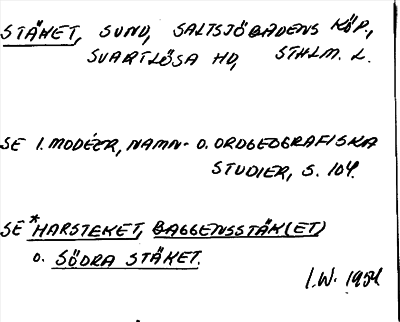 STÄKET, SUND, SALTSJÖBADENS KÖP.,
SVARTLÖSA HD, STHLM. L.
SE I. MODÉER, NAMN- O. ORDGEOGRAFISKA
STUDIER, S. 104.
SE *HARSTEKET, BAGGENSSTÄK(ET)
O. SÖDRA STÄKET.
I.W. 1954